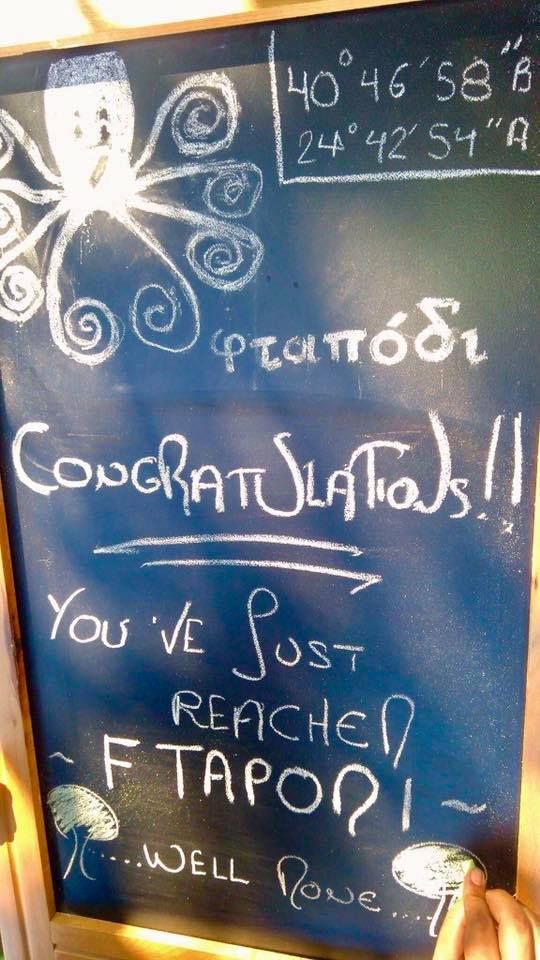 40°46'58"Β
24°42'54"Α
φταπόδι
CONGRATULATIONS!!
YOU'VE JUST
REACHED
~ FTAPODI ~
....WELL DONE....